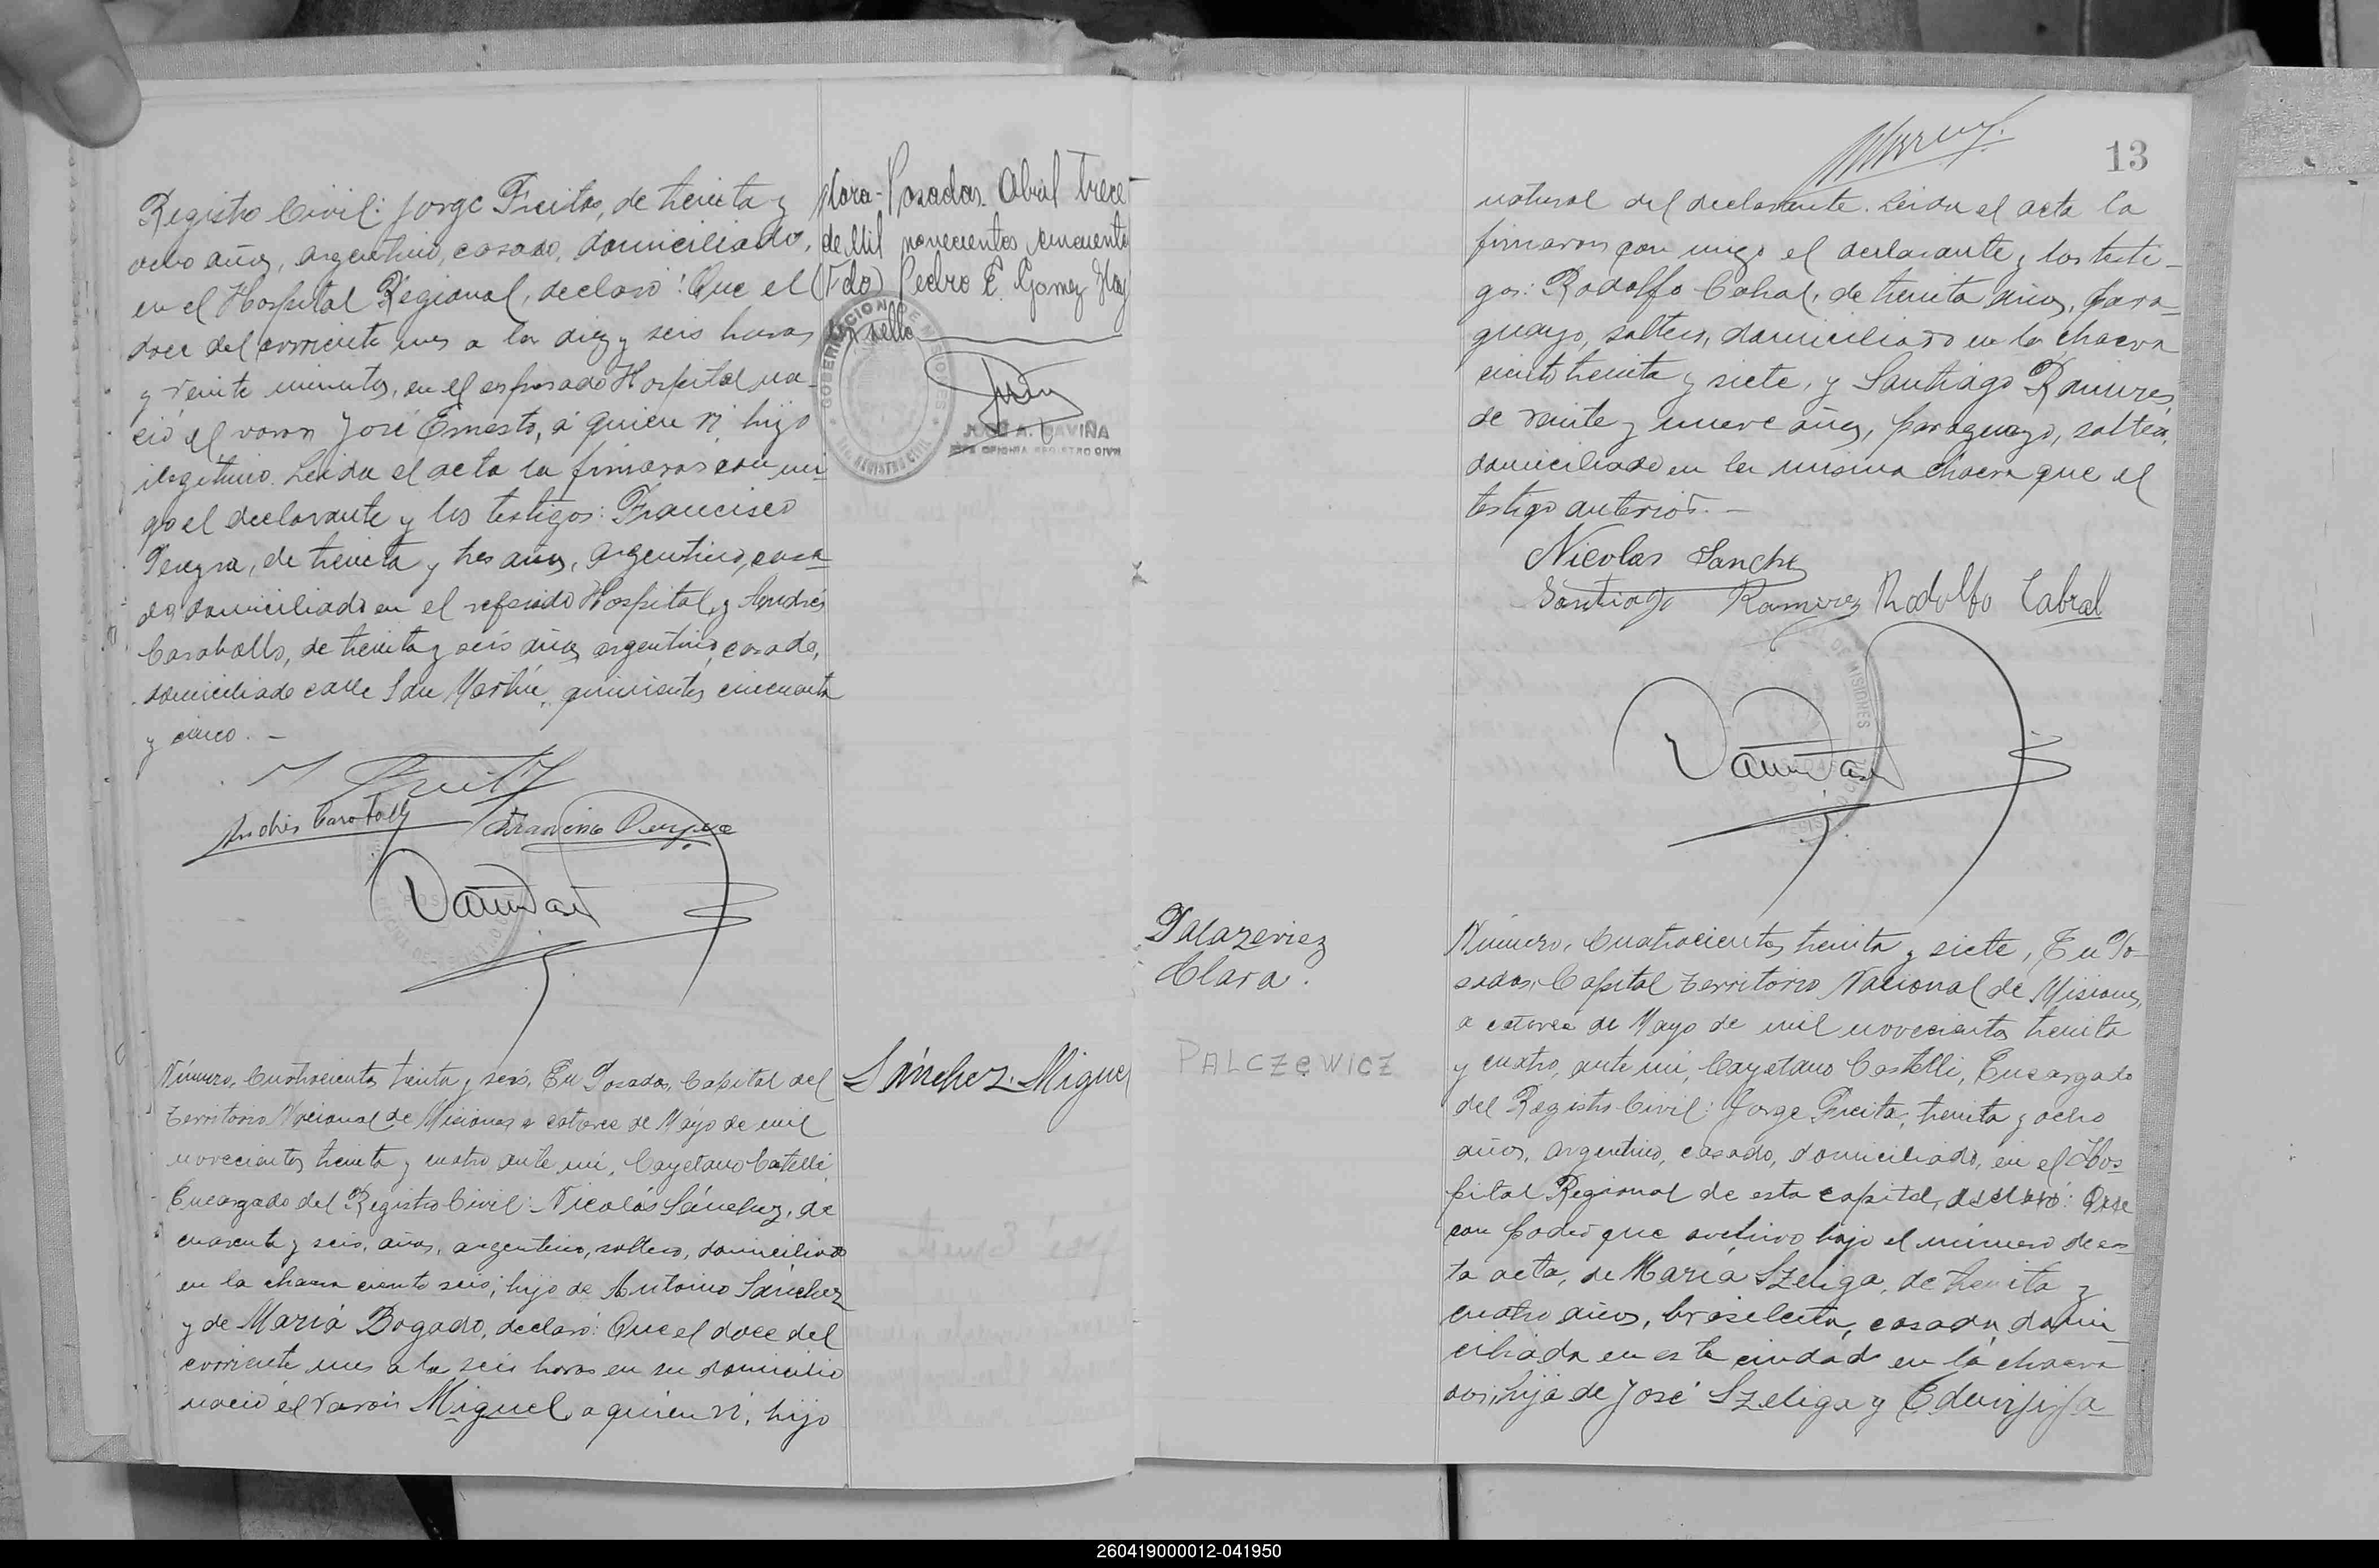 Registro Civil: Jorge Freitas, de treinta y
ocho años, argentino, casado, domiciliado,
en el Hospital Regional, declaró: Que el
doce del corriente mes a las diez y seis horas
y veinte minutos, en el expresado Hospital na-
ció el varon José Ernesto, á quien ví, hijo
ilegítimo. Leida el acta la firmaron con mi-
go el declarante y los testigos: Francisco
de treinta y tres años, argentino, casa-
do domiciliado en el referido Hospital, y Andrés
Caraballo, de treinta y seis años argentino, casado,
domiciliado calle San Martín, quinientos cincuenta
y cinco. -
Andrés Caraballo Francisco
Número, Cuatrocientos treinta y seis, En Posadas, Capital del
Territorio Nacional de Misiones a catorce de Mayo de mil
novecientos treinta y cuatro, ante mí, Cayetano Castelli,
Encargado del Registro Civil: Nicolás Sánchez, de
cuarenta y seis, años, argentino, soltero, domiciliado
en la chacra ciento seis; hijo de Antonio Sánchez
y de María Bogado, declaró: Que el doce del
corriente mes a la seis horas en su domicilio
nació el varón Miguel, a quien ví, hijo
Posadas Abril trece
de Mil novecientos cincuenta
(Fdo) Pedro E. Gomez
y sello
GOBERNACION DE MISIONES
REGISTRO CIVIL
JOSE A. GAVIÑA
JEFE OFICINA REGISTRO CIVIL
Sánchez. Miguel
13
natural del declarante. Leida el acta la
firmaron con migo el declarante y los testi-
gos: Rodolfo Cabral, de treinta años, para-
guayo, soltero, domiciliado en la chacra
ciento treinta y siete, y Santiago Ramires,
de veinte y nueve años, paraguayo, soltero,
domiciliado en la misma chacra que el
testigo anterior. -
Nicolas Sanche
Santiago Ramirez Rodolfo Cabral
DE MISIONES
Palazeviez
Clara.
PALCZEWICZ
Número, Cuatrocientos treinta y siete, En Po-
sadas, Capital Territorio Nacional de Misiones,
a catorce de Mayo de mil novecientos treinta
y cuatro, ante mí, Cayetano Castelli, Encargado
del Registro Civil: Jorge Freita, treinta y ocho
años, argentino, casado, domiciliado, en el Hos-
pital Regional de esta capital, declaró: Que
con poder que archivo bajo el número de es-
ta acta, de María Szeliga, de treinta y
cuatro años, brasileña, casada, domi-
ciliada en esta ciudad en la chacra
dos, hija de José Szeliga y
260419000012-041950